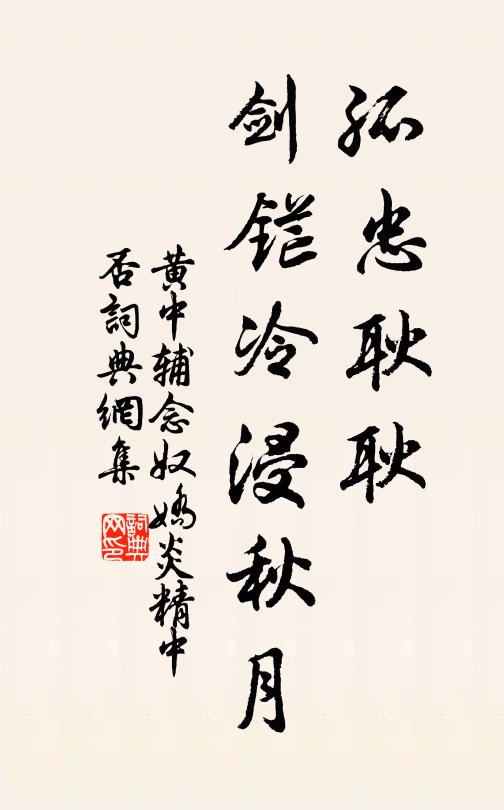 孤忠耿耿
剑铓冷浸秋月
黄中辅念奴娇炎精中
否词典網集
詞典网印